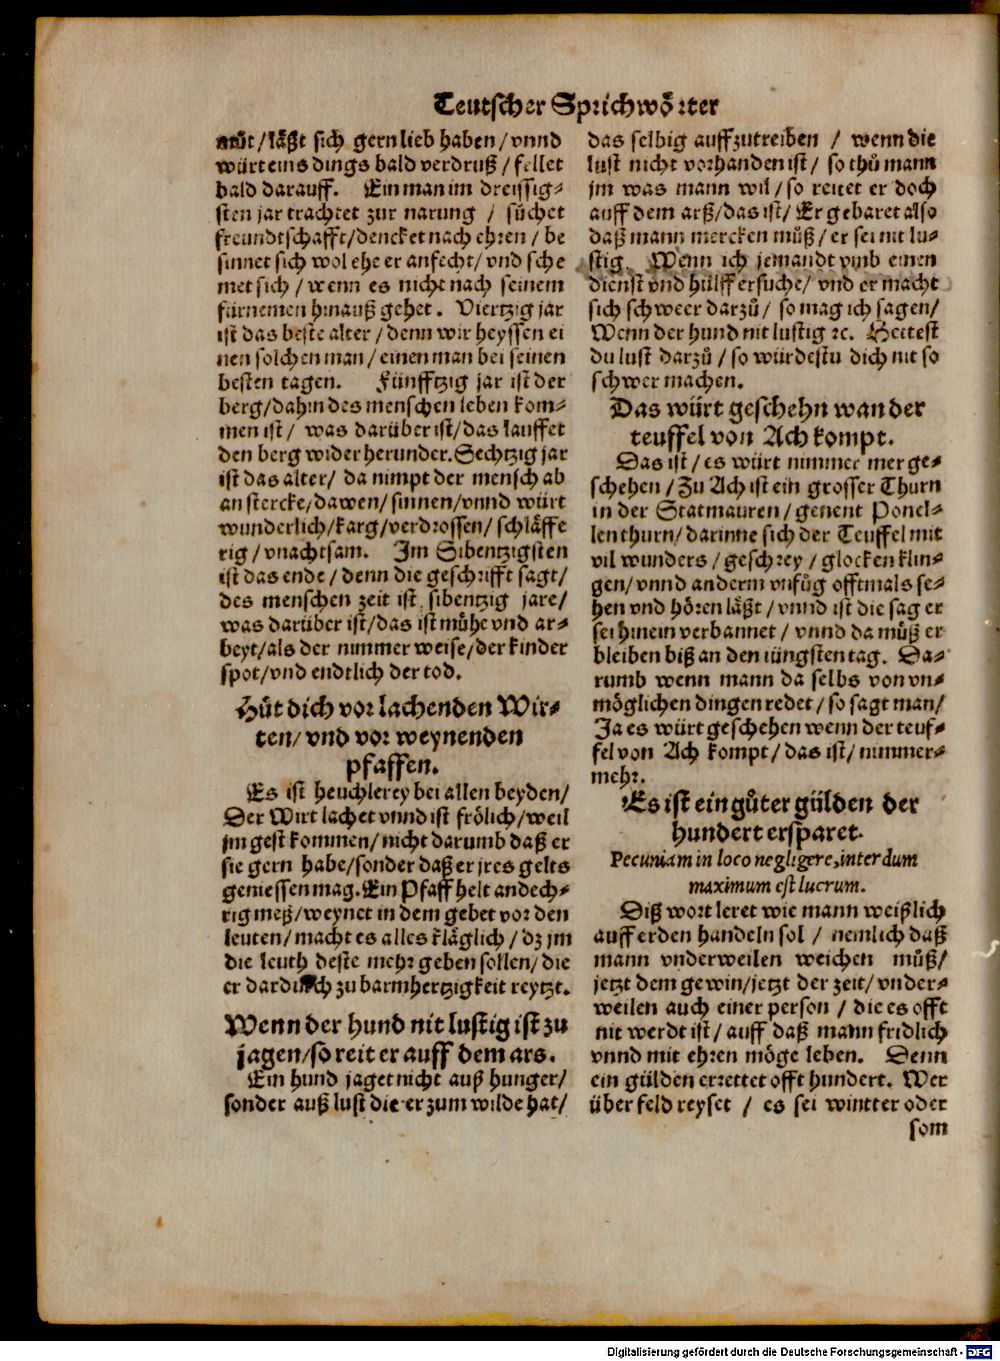 Teutscher Sprichwörter
můt/läßt sich gern lieb haben/vnnd
würt eins dings bald verdruß/fellet
bald darauff. Ein man im dreissig⸗
sten jar trachtet zur narung / sůchet
freundtschafft/dencket nach ehren / be
sinnet sich wol ehe er anfecht/vnd sche
met sich / wenn es nicht nach seinem
fürnemen hinauß gehet. Viertzig jar
ist das beste alter / denn wir heyssen ei
nen solchen man / einen man bei seinen
besten tagen. Fünfftzig jar ist der
berg/dahin des menschen leben kom⸗
men ist / was darüber ist/das lauffet
den berg wider herunder. Sechtzig jar
ist das alter/ da nimpt der mensch ab
an stercke/dawen/sinnen/vnnd würt
wunderlich/karg/verdrossen/schläffe
rig/vnachtsam. Im Sibentzigsten
ist das ende/denn die geschrifft sagt/
des menschen zeit ist sibentzig jare/
was darüber ist/das ist mühe vnd ar⸗
beyt/als der nimmer weise/der kinder
spot/vnd endtlich der tod.
Hüt dich vor lachenden Wir⸗
ten/ vnd vor weynenden
pfaffen.
Es ist heuchlerey bei allen beyden/
Der Wirt lachet vnnd ist frölich/weil
jm gest kommen/nicht darumb daß er
sie gern habe/sonder daß er jres gelts
geniessen mag. Ein Pfaff helt andech⸗
tig meß/weynet in dem gebet vor den
leuten/macht es alles kläglich/dz jm
die leuth deste mehr geben sollen/die
er dardurch zu barmhertzigkeit reytzt.
Wenn der hund nit lustig ist zu
jagen/so reit er auff dem ars.
Ein hund jaget nicht auß hunger/
sonder auß lust die er zum wilde hat/
das selbig auffzutreiben / wenn die
lust nicht vorhanden ist/ so thů mann
jm was mann wil/so reitet er doch
auff dem arß/das ist/Er gebaret also
daß mann mercken můß/er sei nit lu⸗
stig. Wenn ich jemandt vmb einen
dienst vnd hülff ersuche/vnd er macht
sich schweer darzů/ so mag ich sagen/
Wenn der hund nit lustig ꝛc. Hettest
du lust darzů/so würdestu dich nit so
schwer machen.
Das würt geschehn wan der
teuffel von Ach kompt.
Das ist/es würt nimmer mer ge⸗
schehen/Zu Ach ist ein grosser Thurn
in der Statmauren/genent Ponel⸗
len thurn/darinne sich der Teuffel mit
vil wunders/geschrey/glocken klin⸗
gen/vnnd anderm vnfůg offtmals se⸗
hen vnd hören läßt/vnnd ist die sag er
sei hinein verbannet/vnnd da můß er
bleiben biß an den iüngsten tag. Da⸗
rumb wenn mann da selbs von vn⸗
möglichen dingen redet/so sagt man/
Ja es würt geschehen wenn der teuf⸗
fel von Ach kompt/das ist/nimmer⸗
mehr.
Es ist ein gůter gülden der
hundert ersparet.
Pecuniam in loco negligere, interdum
maximum est lucrum.
Diß wort leret wie mann weißlich
auff erden handeln sol / nemlich daß
mann vnderweilen weichen můß/
jetzt dem gewin/jetzt der zeit/vnder⸗
weilen auch einer person / die es offt
nit werdt ist/auff daß mann fridlich
vnnd mit ehren möge leben. Denn
ein gülden errettet offt hundert. Wer
über feld reyset / es sei wintter oder
som
Digitalisierung gefördert durch die Deutsche Forschungsgemeinschaft - DFG